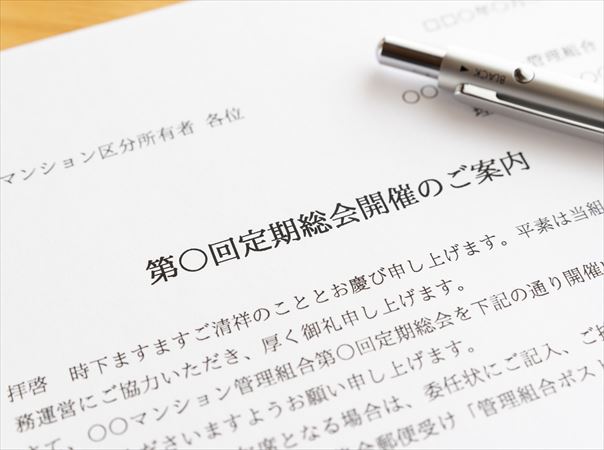 □□○年○
管理組合
BLACK
マンション区分所有者 各位
第〇回定期総会開催のご案内
拝啓 時下ますますご清祥のこととお慶び申し上げます。平素は当組
務運営にご協力いただき、厚く御礼申し上げます。
さて、〇〇マンション管理組合第〇回定期総会を下記の通り開催
くださいますようお願い申し上げます。
席となる場合は、委任状にご記入、ご
郵便受け「管理組合ポス